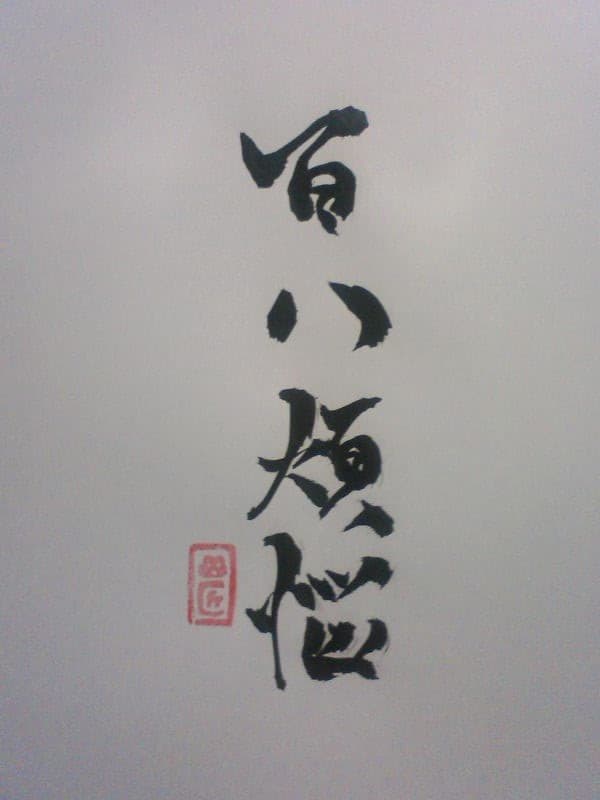 百八煩悩